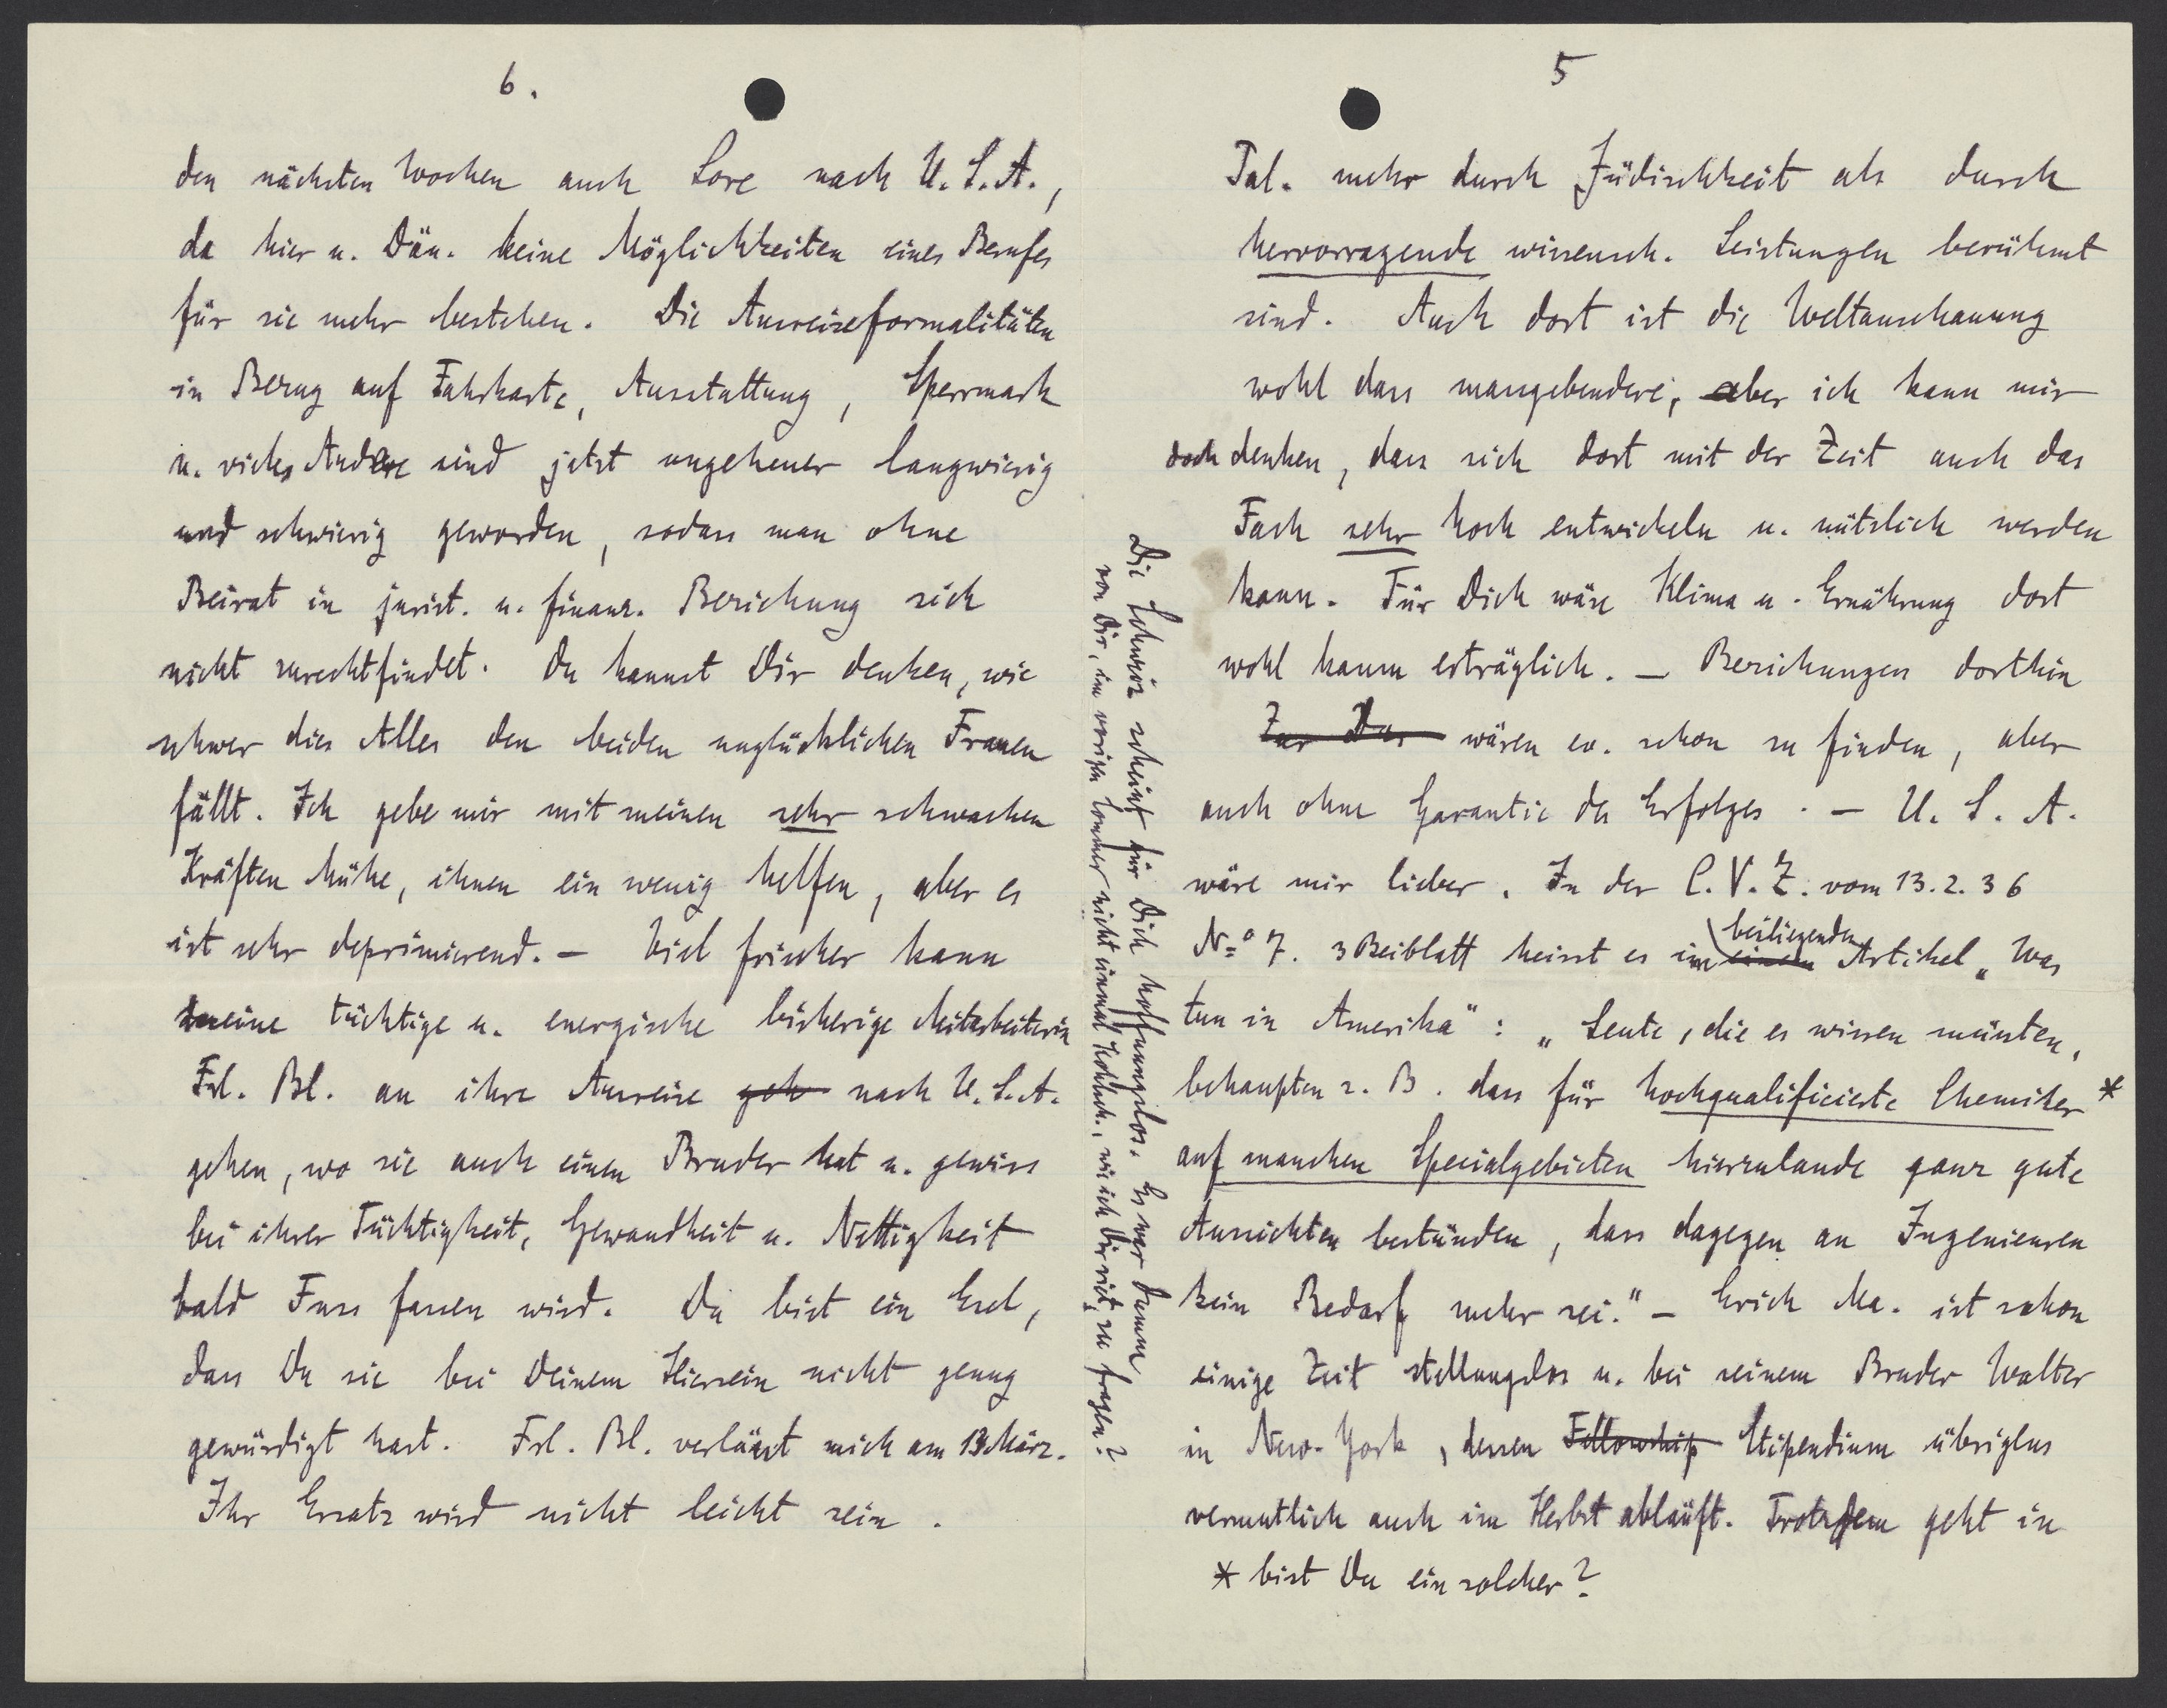 5
Pal. mehr durch Jüdischkeit als durch
hervorragende wissensch. Leistungen berühmt
sind. Auch dort ist die Weltanschauung
wohl dass massgebendere, aber ich kann mir
doch denken, dass sich dort mit der Zeit auch das
Fach sehr hoch entwickeln u. nützlich werden
kann. Für Dich wäre Klima u. Ernährung dort
wohl kaum erträglich. — Beziehungen dorthin
Zur Dur wären ev. schon zu finden, aber
auch ohne Garantie des Erfolges. — U. S. A.
wäre mir lieber. In der C. V. Z. vom 13. 2. 36
No 7. 3 Beiblatt heisst es im einem beiliegenden Artikel „Was
tun in Amerika“: „Leute, die es wissen müssten,
behaupten z. B. dass für hochqualificierte Chemiker *
auf manchen Specialgebieten hierzulande ganz gute
Aussichten bestünden, dass dagegen an Ingenieuren
kein Bedarf mehr sei.“ — Erich Ma. ist schon
einige Zeit stellungslos u. bei seinem Bruder Walter
in New-York, dessen Fellowship Stipendium übrigens
vermutlich auch im Herbst abläuft. Trotzdem geht in
* bist Du ein solcher?
Die Schweiz scheint für Dich hoffnungslos. Es war dumm
von Dir, im vorigen Sommer nicht einmal Kohlsch., wie ich Dir riet, zu fragen?
6.
den nächsten Wochen auch Lore nach U. S. A.,
da hier u. Dän. keine Möglichkeiten eines Berufes
für sie mehr bestehen. Die Ausreiseformalitäten
in Bezug auf Fahrkarte, Ausstattung, Sperrmark
u. vieles Andere sind jetzt ungeheuer langwierig
und schwierig geworden, sodass man ohne
Beirat in jurist. u. finanz. Beziehung sich
nicht zurechtfindet. Du kannst Dir denken, wie
schwer dies Alles den beiden unglücklichen Frauen
fällt. Ich gebe mir mit meinen sehr schwachen
Kräften Mühe, ihnen ein wenig helfen, aber es
ist sehr deprimierend. — Viel frischer kann
meine tüchtige u. energische bisherige Mitarbeiterin
Frl. Bl. an ihre Ausreise geh nach U. S. A.
gehen, wo sie auch einen Bruder hat u. gewiss
bei ihrer Tüchtigkeit, Gewandheit u. Nettigkeit
bald Fuss fassen wird. Du bist ein Esel,
dass Du sie bei Deinem Hiersein nicht genug
gewürdigt hast. Frl. Bl. verlässt mich am 13 März.
Ihr Ersatz wird nicht leicht sein.